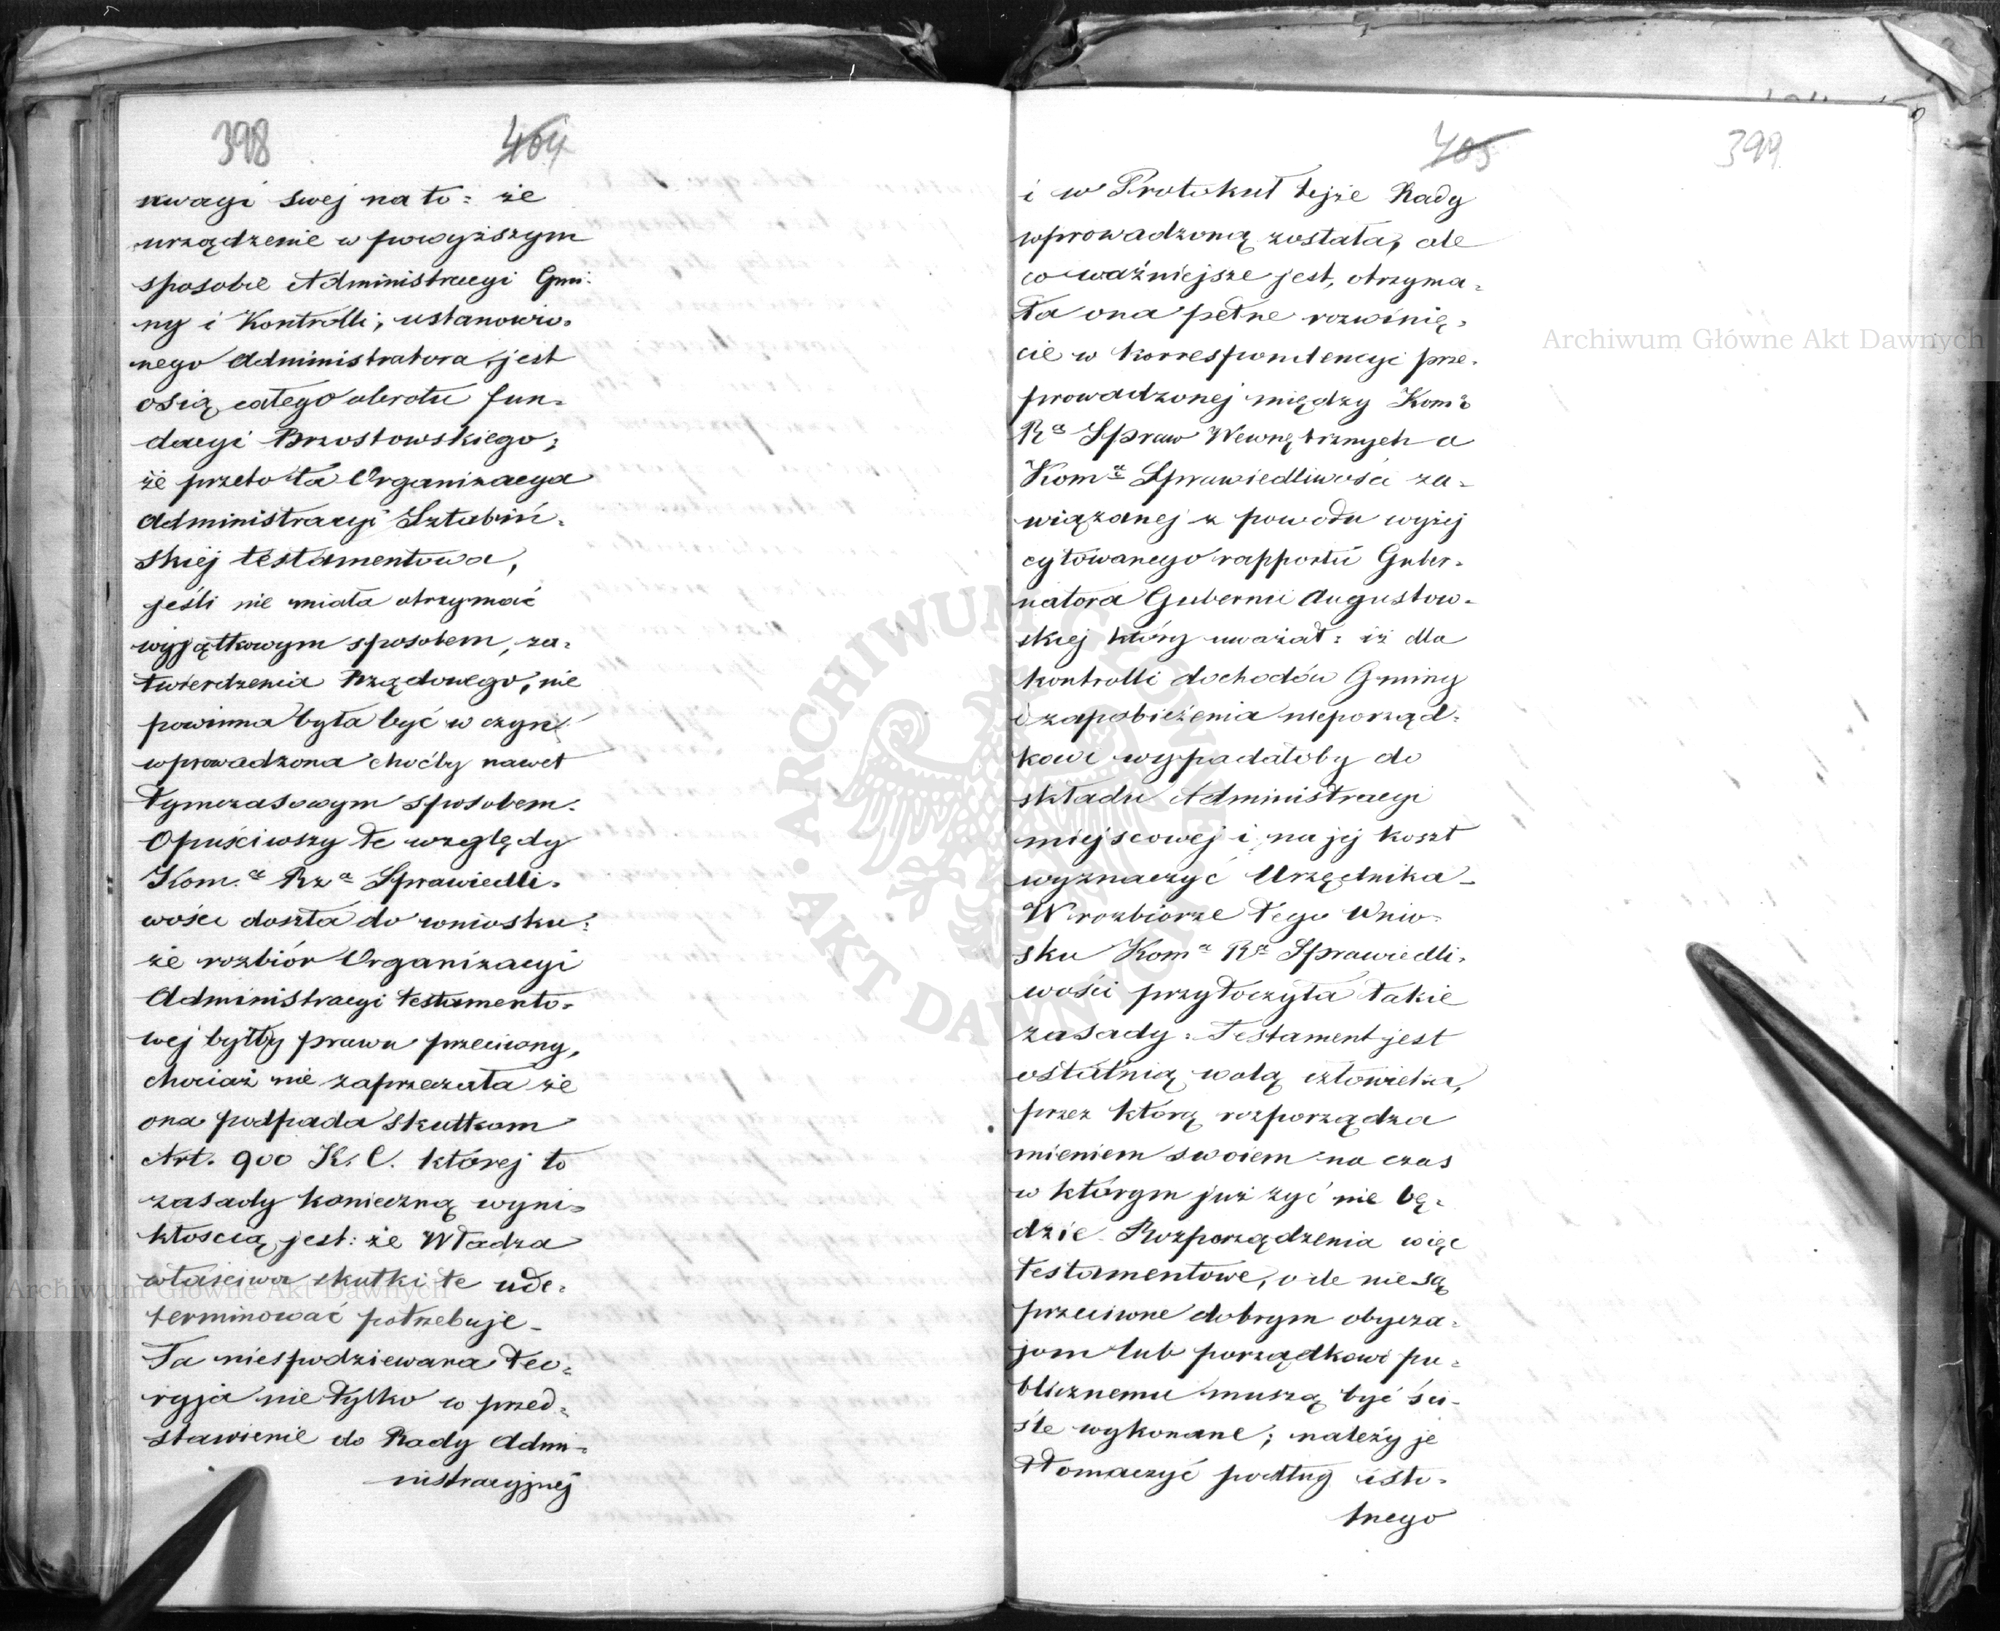 398 404
uwagi swej na to: że
urządzenie w powyższym
sposobie Administracyi Gmi:
ny i Kontrolli, ustanowio:
nego Administratora, jest
osią całego obrotu fun:
dacyi Brzostowskiego;
że przeto ta Organizacya
Administracyi Sztabiń:
skiej testamentowa,
jeśli nie miała otrzymać
wyjątkowym sposobem, za:
twierdzenia Rządowego, nie
powinna była być w czyn
wprowadzona choćby nawet
tymczasowym sposobem.
Opuściwszy te względy
Kom.a Rza Sprawiedli:
wości doszła do wniosku:
że rozbiór Organizacyi
Administracyi testamento:
wej byłby prawu przeciwny,
chociaż nie zaprzeczała że
ona podpada skutkom
Art. 900 K. C. której to
zasady konieczną wyni:
kłoscią jest: że Władza
właściwa skutki te ude:
terminować potrzebuje_
Ta niespodziewana teo:
ryja nie tylko w przed:
stawienie do Rady Admi:
nistracyjnej
405 399
i w Protokuł tejże Rady
wprowadzoną została, ale
co ważniejsze jest, otrzyma:
ła ona pełne rozwinię:
cie w korrespondencyi prze:
prowadzonej między Kom:
Ra Spraw Wewnętrznych a
Koma Sprawiedliwości za:
wiązanej z powodu wyżej
cytowanego rapportu Guber:
natora Gubernii Augustow:
skiej który uważał: iż dla
kontrolli dochodów Gminy
i zapobieżenia nieporząd:
kowi wypadałoby do
składu Administracyi
miejscowej i na jej koszt
wyznaczyć Urzędnika_
W rozbiorze tego wnio:
sku Koma Ra Sprawiedli:
wości przytoczyła takie
zasady: Testament jest
ostatnią wolą człowieka,
przez którą rozporządza
mieniem swoiem na czas
w którym już żyć nie bę:
dzie. Rozporządzenia więc
testamentowe, o ile nie są
przeciwne dobrym obycza:
jom lub porządkowi pu:
blicznemu muszą być ści:
śle wykonane; należy je
tłomaczyć podług isto:
tnego
Archiwum Główne Akt Dawnych
Archiwum Główne Akt Dawnych
ARCHIWUM GŁÓWNE AKT DAWNYCH · AKT DAWNYCH